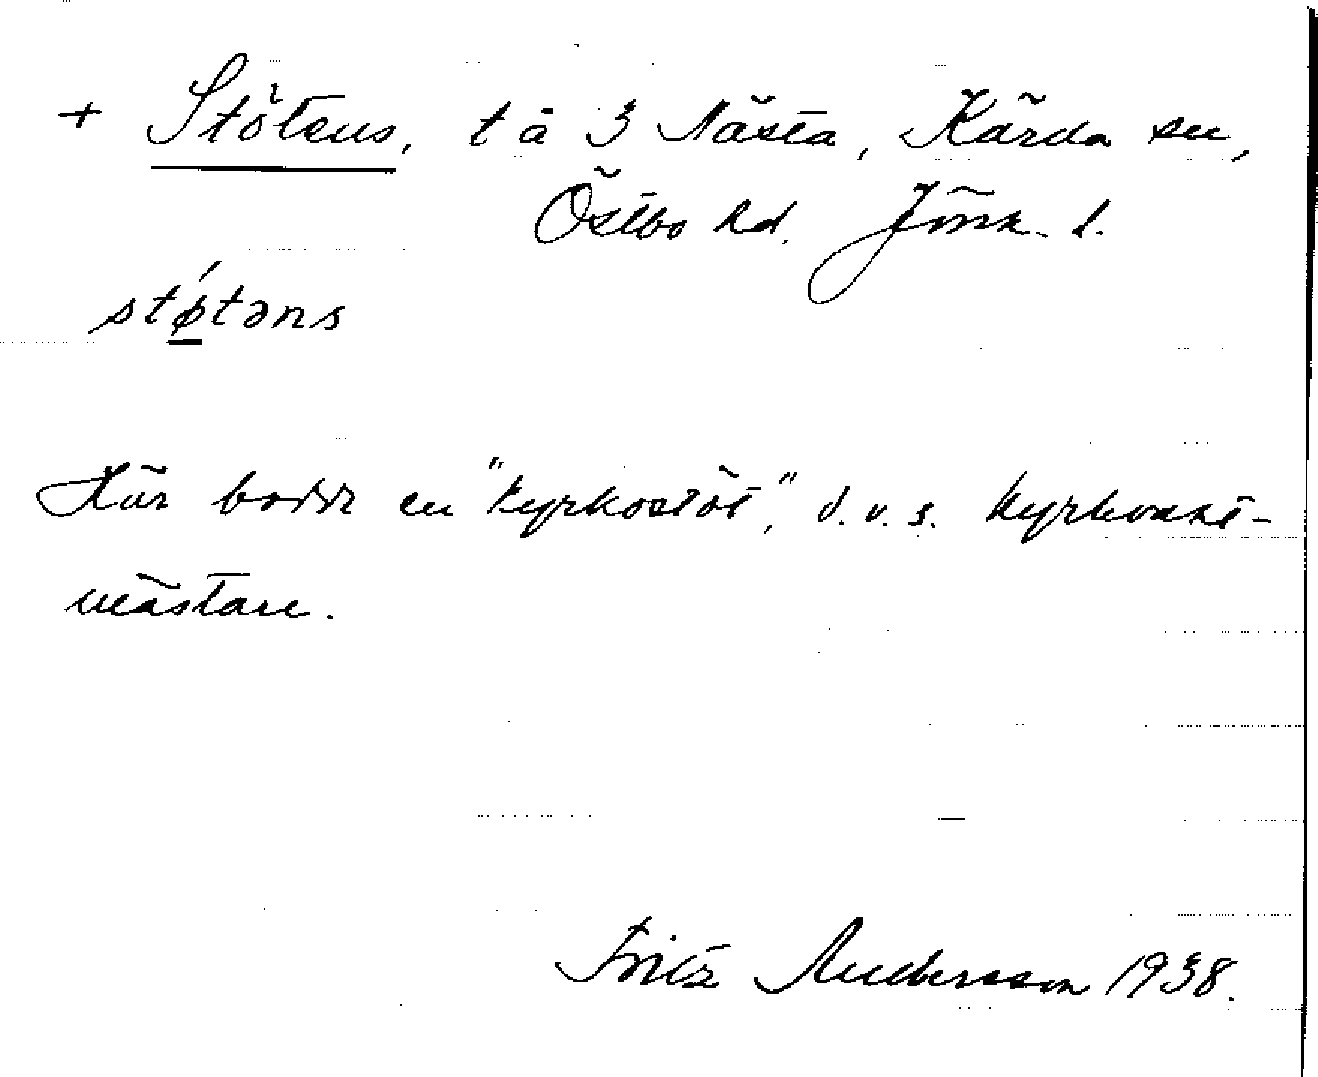 + Stötens, t å 3 Nästa, Kärda sn,
Östbo hd. Jönk. l.
stǿtəns
Här bodde en "kyrkostöt", d.v.s. kyrkvakt-
mästare.
Fritz Andersson 1938.